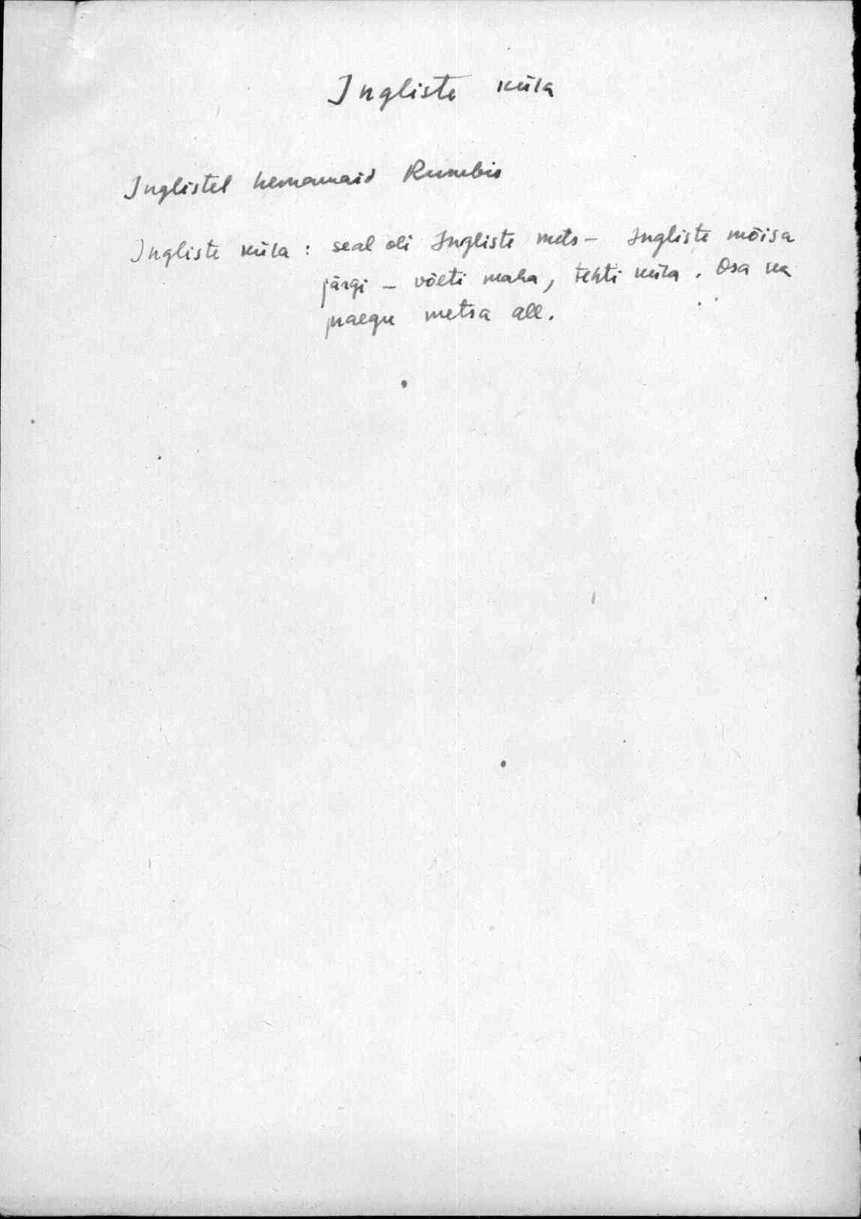 Ingliste küla
Inglistel heinamaid Rumbis
Ingliste küla: seal oli Ingliste mets – Ingliste mõisa
järgi – võeti maha, tehti küla. Osa ka
praegu metsa all.